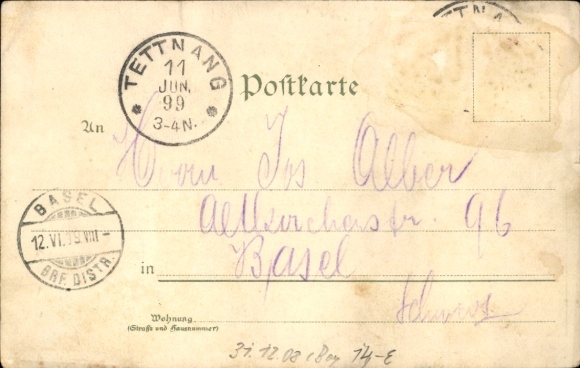 TETTNANG
TETTNANG
11
JUN.
99
3-4N.
Postkarte
An
Herrn Jos Alber
Altkircherstr. 96
BASEL
12.VI.99 VIII-
BRF. DISTR.
in Basel
Schweiz
Wohnung
(Straße und Hausnummer)
31.12.08 14-E